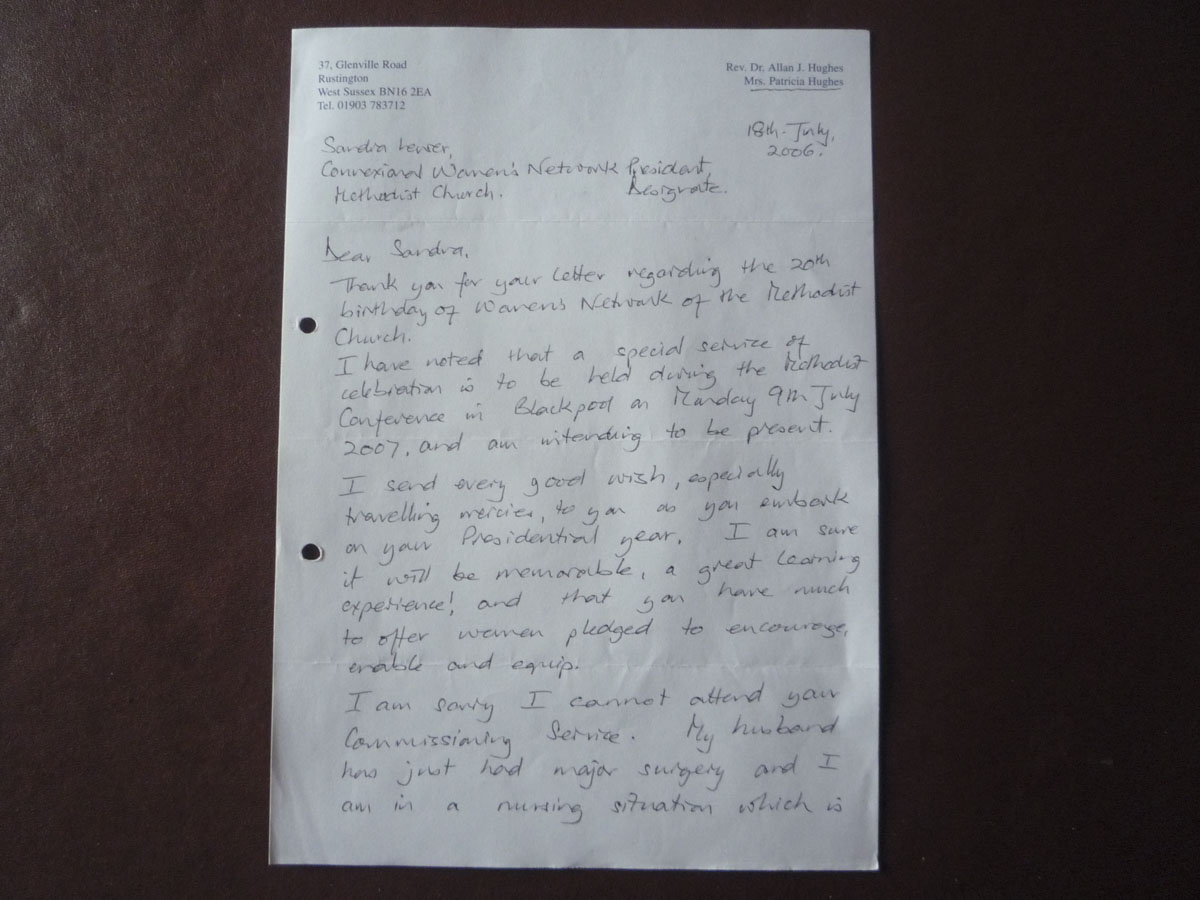 37, Glenville Road
Rustington
West Sussex BN16 2EA
Tel. 01903 783712
Rev. Dr. Allan J. Hughes
Mrs. Patricia Hughes
18th July,
2006.
Sandra Lewer,
Connexional Women's Network President
Methodist Church. Designate.
Dear Sandra,
Thank you for your letter regarding the 20th
birthday of Women's Network of the Methodist
Church.
I have noted that a special service of
celebration is to be held during the Methodist
Conference in Blackpool on Monday 9th July
2007, and am intending to be present.
I send every good wish, especially
travelling mercies, to you as you embark
on your Presidential year. I am sure
it will be memorable, a great learning
experience! and that you have much
to offer women pledged to encourage,
enable and equip.
I am sorry I cannot attend your
Commissioning Service. My husband
has just had major surgery and I
am in a nursing situation which is